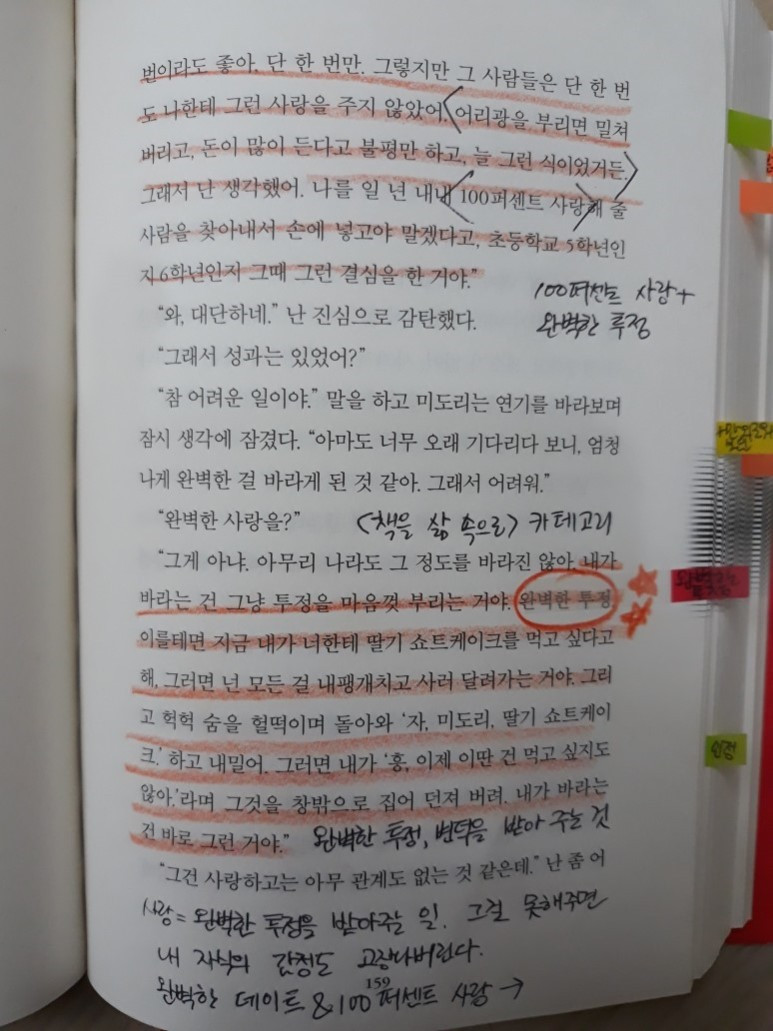 번이라도 좋아, 단 한 번만. 그렇지만 그 사람들은 단 한 번
도 나한테 그런 사랑을 주지 않았어. 어리광을 부리면 밀쳐
버리고, 돈이 많이 든다고 불평만 하고, 늘 그런 식이었거든.
그래서 난 생각했어. 나를 일 년 내내 100퍼센트 사랑해 줄
사람을 찾아내서 손에 넣고야 말겠다고, 초등학교 5학년인
지 6학년인지 그때 그런 결심을 한 거야.”
100퍼센트 사랑+
“와, 대단하네.” 난 진심으로 감탄했다.
완벽한 투정
“그래서 성과는 있었어?”
“참 어려운 일이야.” 말을 하고 미도리는 연기를 바라보며
잠시 생각에 잠겼다. “아마도 너무 오래 기다리다 보니, 엄청
나게 완벽한 걸 바라게 된 것 같아. 그래서 어려워.”
“완벽한 사랑을?”
<책을 삶 속으로> 카테고리
“그게 아냐. 아무리 나라도 그 정도를 바라진 않아. 내가
바라는 건 그냥 투정을 마음껏 부리는 거야. 완벽한 투정.
이를테면 지금 내가 너한테 딸기 쇼트케이크를 먹고 싶다고
해, 그러면 넌 모든 걸 내팽개치고 사러 달려가는 거야. 그리
고 헉헉 숨을 헐떡이며 돌아와 ‘자, 미도리, 딸기 쇼트케이
크.’ 하고 내밀어. 그러면 내가 ‘흥, 이제 이딴 건 먹고 싶지도
않아.’라며 그것을 창밖으로 집어 던져 버려. 내가 바라는
건 바로 그런 거야.”
완벽한 투정, 변덕을 받아 주는 것
“그건 사랑하고는 아무 관계도 없는 것 같은데.” 난 좀 어
사랑=완벽한 투정을 받아주는 일. 그걸 못해주면
내 자식의 감정도 고장나버린다.
159
완벽한 데이트 & 100퍼센트 사랑→
인정